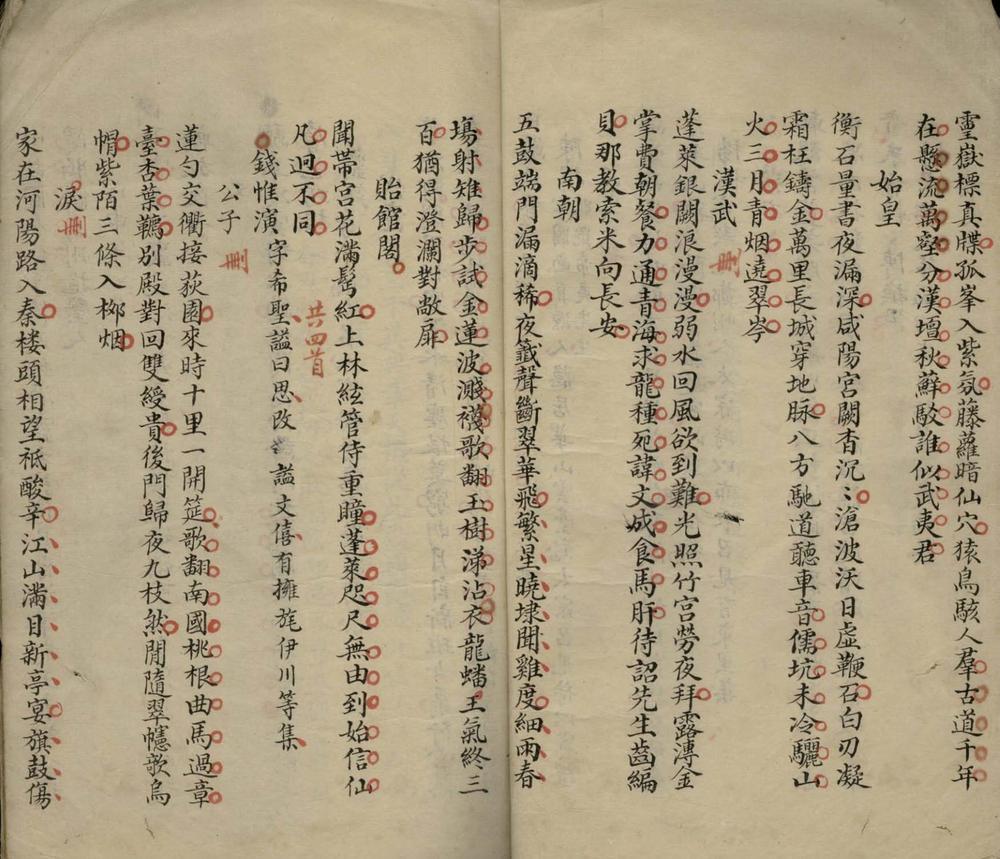 靈嶽標真牒孤峯入紫氛藤蘿暗仙穴猿鳥駭人羣古道千年
在懸流萬壑分漢壇秋蘚駁誰似武夷君
始皇
衡石量書夜漏深咸陽宮闕杳沉〻滄波沃日虛鞭石白刃凝
霜枉鑄金萬里長城穿地脉八方馳道聽車音儒坑未冷驪山
火三月青烟遶翠岑
漢武 刪
蓬萊銀闕浪漫漫弱水回風欲到難光照竹宮勞夜拜露漙金
掌費朝餐力通青海求龍種死諱文成食馬肝待詔先生齒編
貝那教索米向長安
南朝
五鼓端門漏滴稀夜籤聲斷翠華飛繁星曉埭聞雞度細雨春
塲射雉歸步試金蓮波濺襪歌翻玉樹涕沾衣龍蟠王氣終三
百猶得澄瀾對敞扉
貽館閣
聞帶宮花滿鬂紅上林絃管侍重瞳蓬萊咫尺無由到始信仙
凡迥不同 共四首
錢惟演 字希聖諡曰思改諡文僖有擁旄伊川等集
公子 刪
蓮勺交衢接荻園來時十里一開筵歌翻南國桃根曲馬過章
臺杏葉韉別殿對回雙綬貴後門歸夜九枝然閒隨翠幰歌烏
帽紫陌三條入栁烟
淚 刪
家在河陽路入秦楼頭相望祗酸辛江山滿目新亭宴旗鼓傷